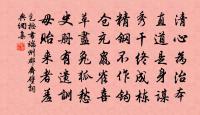 清心為治本
直道是身謀
秀干終成棟
精鋼不作鈎
倉充鼠雀喜
草盡兔狐愁
史册有遺訓
毋貽來者羞
包拯書端州郡齋壁